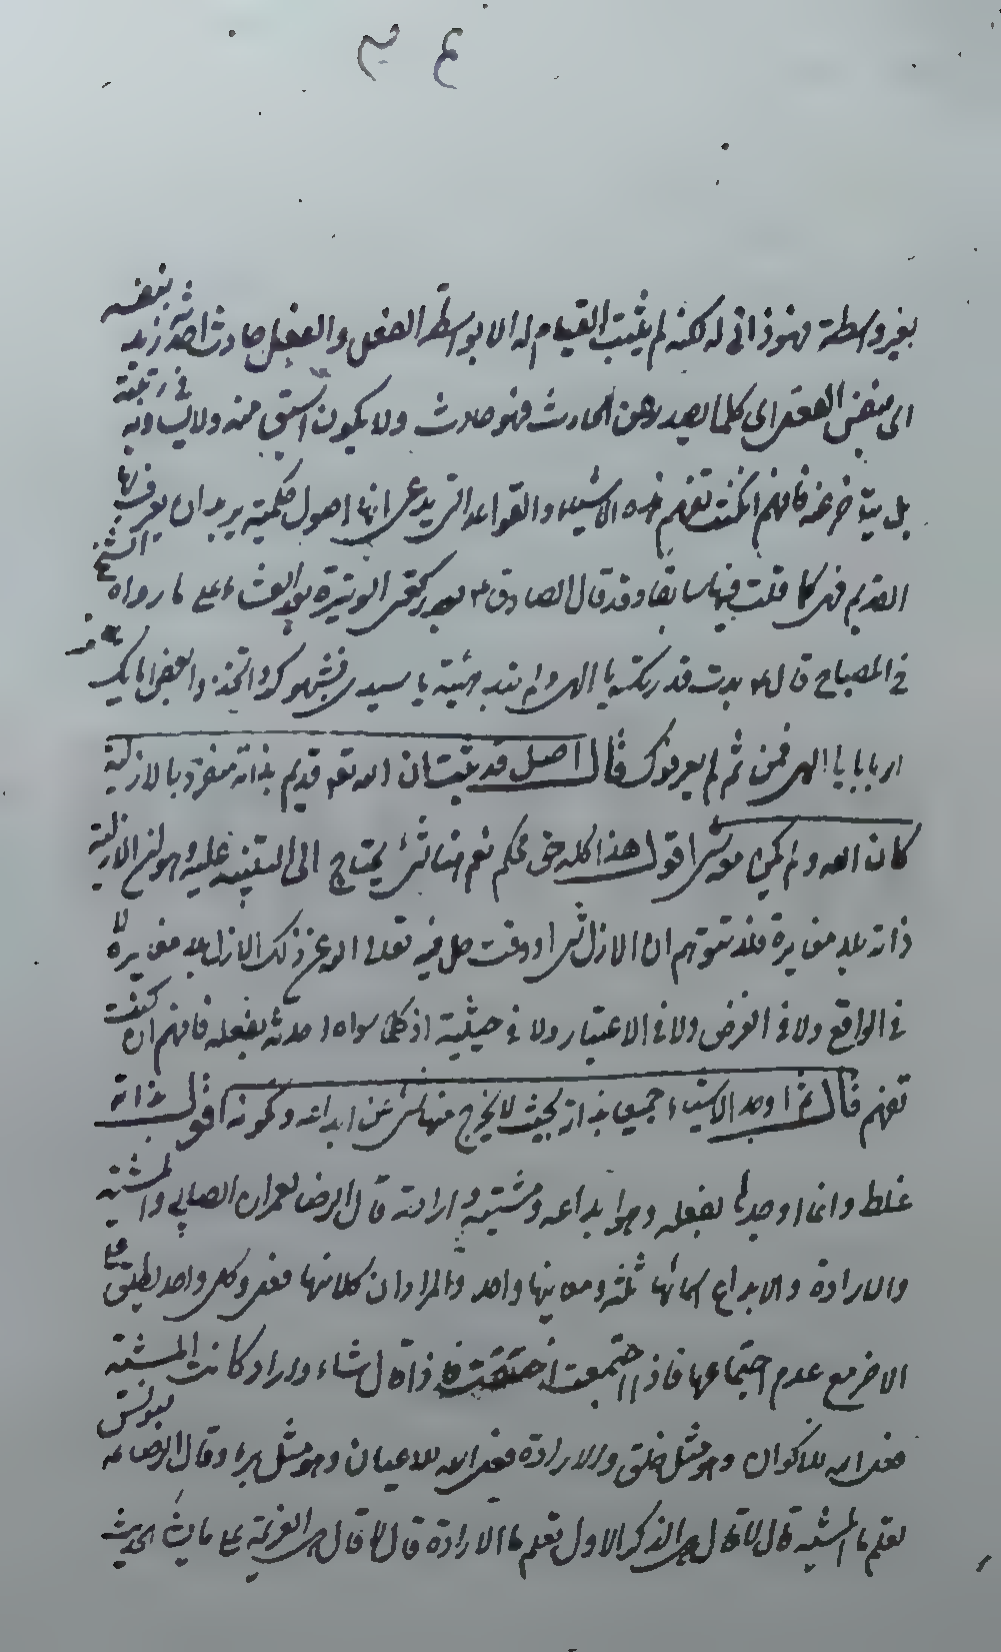 بغير واسطة فهو ذاتي له لكنه لم يثبت القيام له الا بواسطة الفعل والفعل حادث احدثه زيد بنفسه
الى نفس الفعل اى كلما يصدر عن الحادث فهو حادث ولا يكون اسبق منه ولا يساويه في رتبته
بل يتأخر عنه فافهم ان كنت تفهم هذه الاشياء والقواعد التي يدعى انها اصول حكمية يريد ان يعرف بها
القديم فهى كما قلت فيها سابقا وقد قال الصادق ع بعد ركعتي الوتيرة بعد العشاء على ما رواه الشيخ
في المصباح قال ع بدت قدرتك يا الهى ولم تبد هيئة يا سيدى فشبهوك واتخذوا بعض اياتك
اربابا يا الهى فمن ثم لم يعرفوك قال اصل قد ثبت ان الله تعه قديم بذاته متفرد بالازلية
كان الله ولم يكن معه شى اقول هذا كله حق محكم نعم هنا شئ يحتاج الى التنبيه عليه وهو ان الازلية
ذاته بلا مغايرة فلا تتوهم ان الازل شى او وقت حل فيه تعالى الله عن ذلك الازل بلا مغايرة لا
في الواقع ولا في الفرض ولا في الاعتبار ولا في حيثية اذ كلما سواه احدثه بفعله فافهم ان كنت
تفهم قال ثم اوجد الاشياء جميعا بذاته بحيث لا يخرج منها شئ عن ابداعه وكونه اقول بذاته
غلط وانما اوجدها بفعله وهو ابداعه ومشيته وارادته قال الرضا لعمران الصابي والمشية
والارادة والابداع اسمائها ثلثة ومعانيها واحد والمراد ان كلا منها فعل وكل واحد يطلق على
الاخر مع عدم اجتماعها فاذا اجتمعت ذاقال شاء واراد كانت المشية
فعل الله للاكوان وهو مثل خلق والارادة فعل الله للاعيان وهو مثل برء وقال الرضا ع ليونس
تعلم ما المشية قال لا قال هى الذكر الاول تعلم ما الارادة قال لا قال هى العزيمة على ما يشاء الحديث